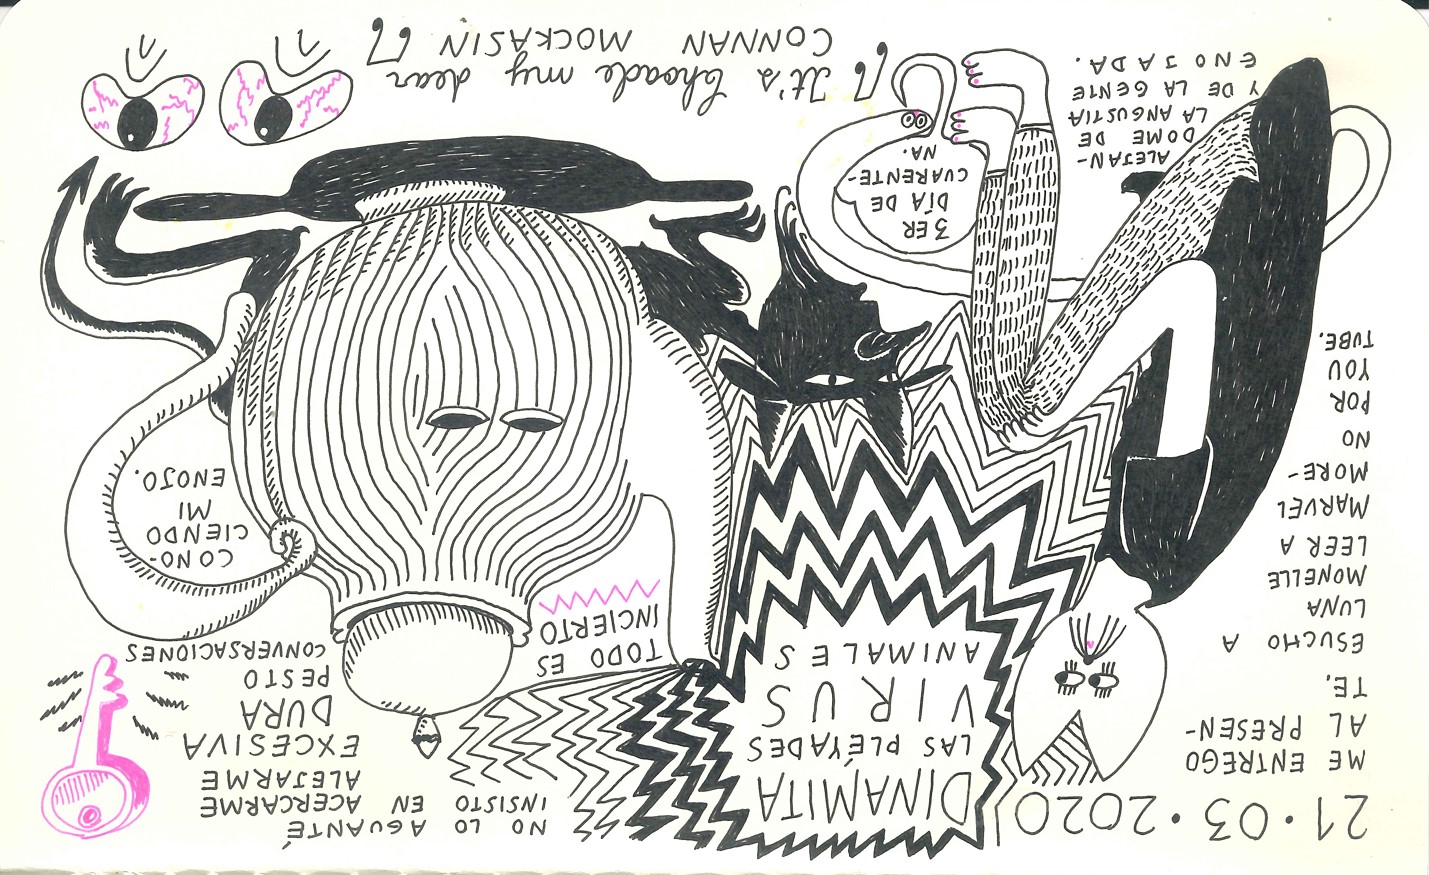 21·03·2020
ME ENTREGO
AL PRESEN-
TE.
ESUCHO A
LUNA
MONELLE
LEER A
MARVEL
MORE-
NO
POR
YOU
TUBE.
DINAMITA
LAS PLÉYADES
VIRUS
ANIMALES
NO LO AGUANTÉ
INSISTO EN ACERCARME
ALEJARME
EXCESIVA
DURA
PESTO
CONVERSACIONES
TODO ES
INCIERTO
CONO-
CIENDO
MI
ENOJO.
ALEJAN-
DOME DE
LA ANGUSTIA
Y DE LA GENTE
ENOJADA.
3ER
DÍA DE
CUARENTE-
NA.
"It's Choade my dear
CONNAN MOCKASIN"